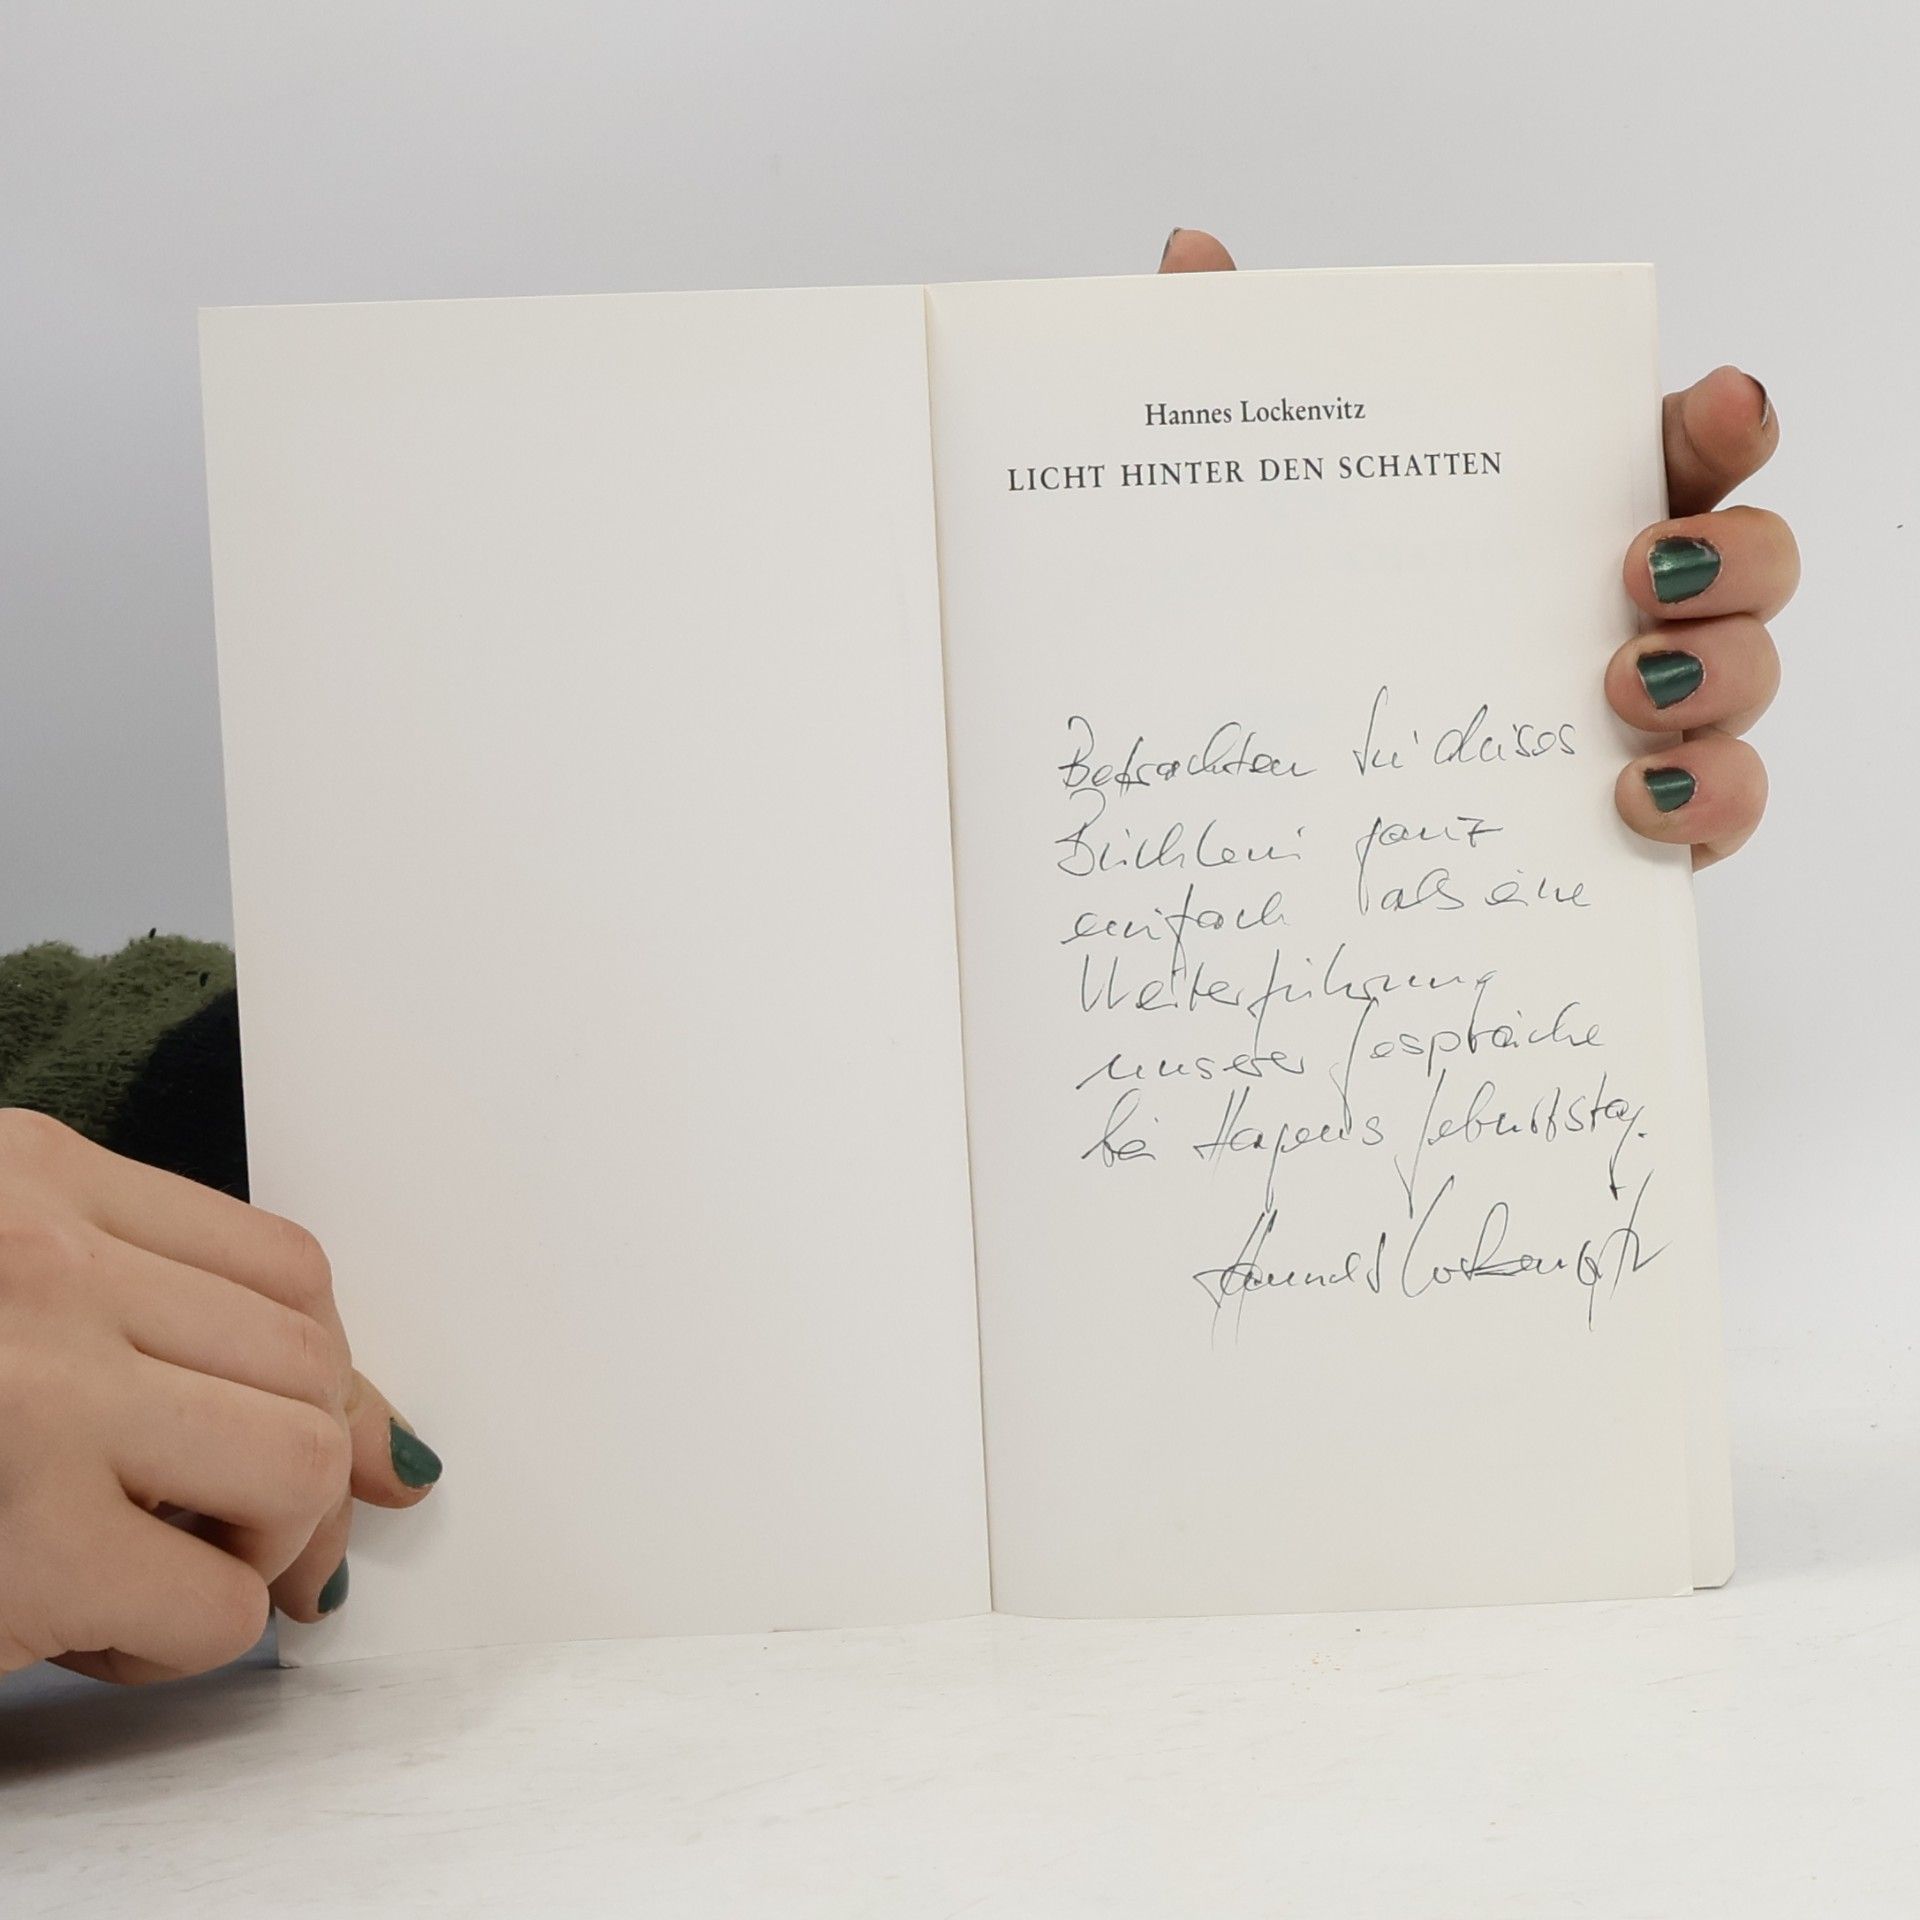 Hannes Lockenvitz
LICHT HINTER DEN SCHATTEN
Betrachten Sie dieses
Büchlein ganz
einfach als eine
Weiterführung
unserer Gespräche
bei Hagens Geburtstag.
Hannes Lockenvitz